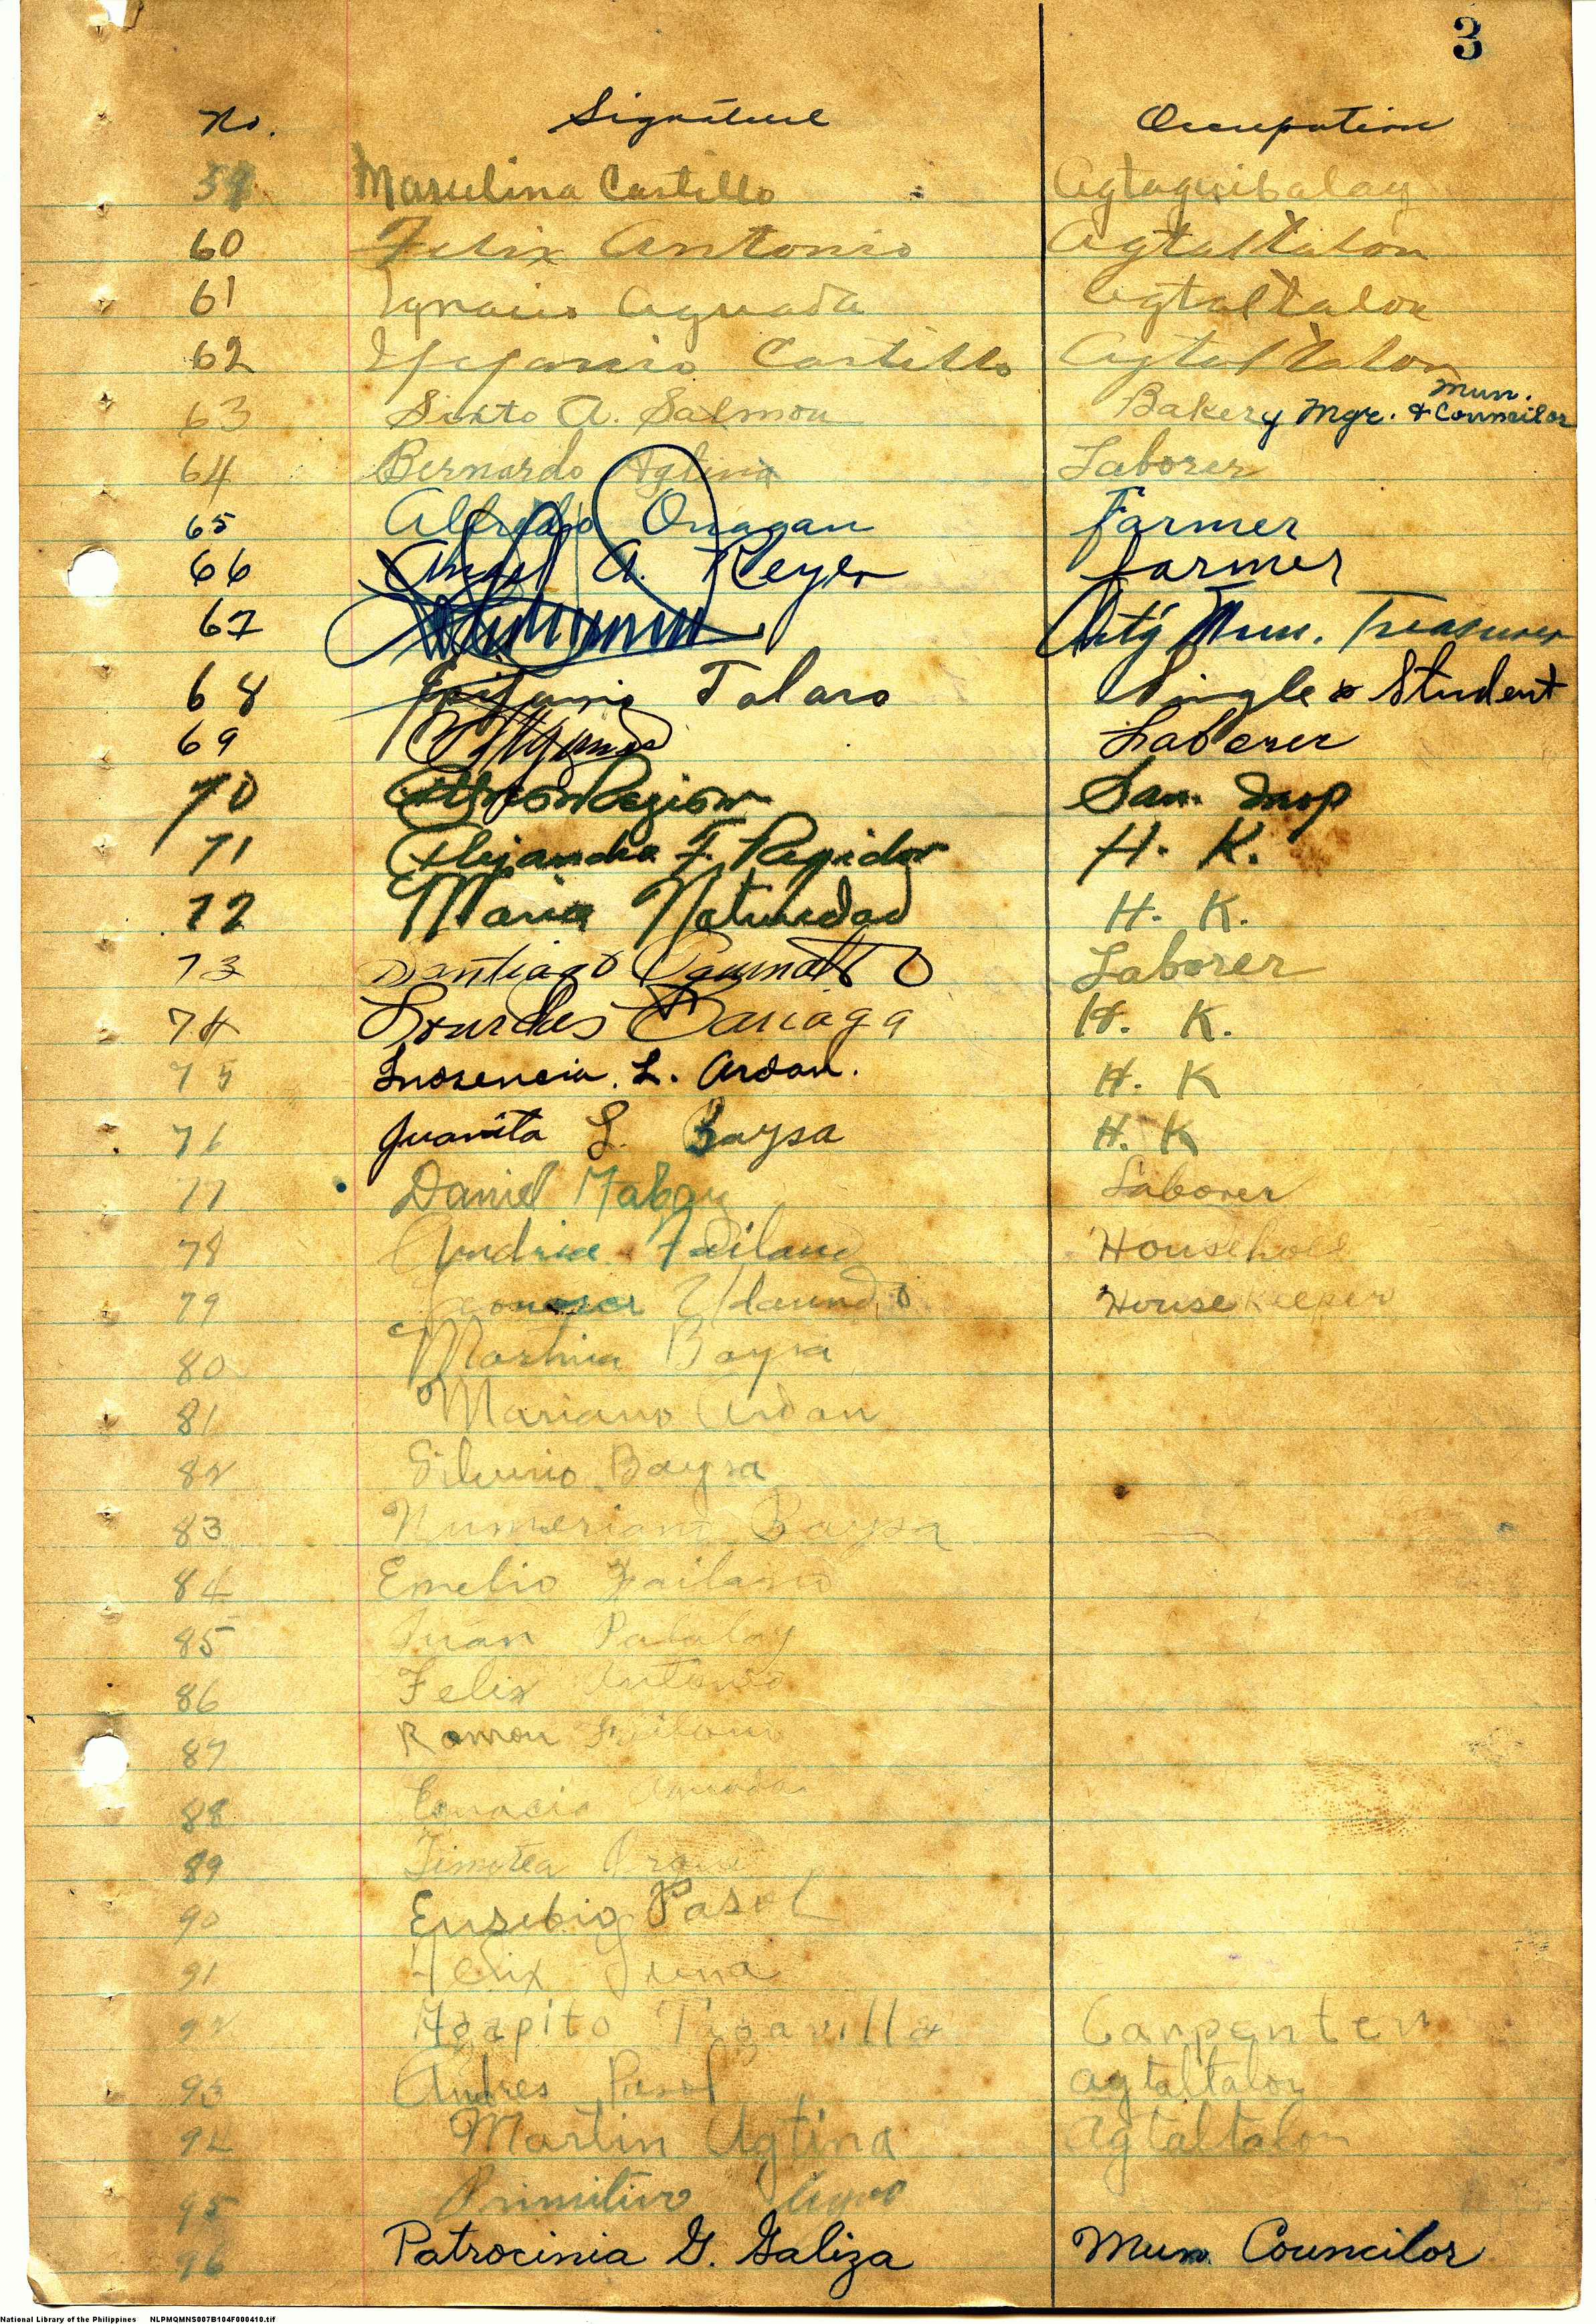 3
No. Signature Occupation
59 Marselina Castillo Agtaguibalay
60 Felix Antonio Agtaltalon
61 Ignacio Aguada Agtaltalon
62 Epifanio Castillo Agtaltalon
63 Sixto A. Salmon Bakery Mgr. & Mun. Councilor
64 Bernardo Agtina Laborer
65 Alfredo Onagan Farmer
66 Angel A. Reyes farmer
67 Mun. Treasurer
68 Epifanio Talaro Single & Student
69 Laborer
70 San. Insp
71 Alejandra F. Regidor H. K.
72 Maria Natividad H. K.
73 Santiago Laborer
74 Lourdes Bariaga H. K.
75 Inosencia L. Ardan. H. K
76 Juanita L. Baysa H. K
77 Daniel Laborer
78 Andrea Failano Household
79 House Keeper
80 Baysa
81 Mariano Ardan
82 Silverio Baysa
83 Numeriano Baysa
84 Emelio Failano
85 Juan Palalay
86 Felix Antonio
87 Ramon Failano
88 Aguada
89 Timotea
90 Eusebio Pasol
91 Felix
92 Agapito Carpenter
93 Andres Pasol agtaltalon
94 Martin Agtina Agtaltalon
95 Primitivo
96 Patrocinia G. Galiza Mun. Councilor
National Library of the Philippines NLPMQMNS007B104F000410.tif